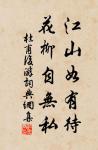 江山如有待
花柳自無私
杜甫後遊詞典網集